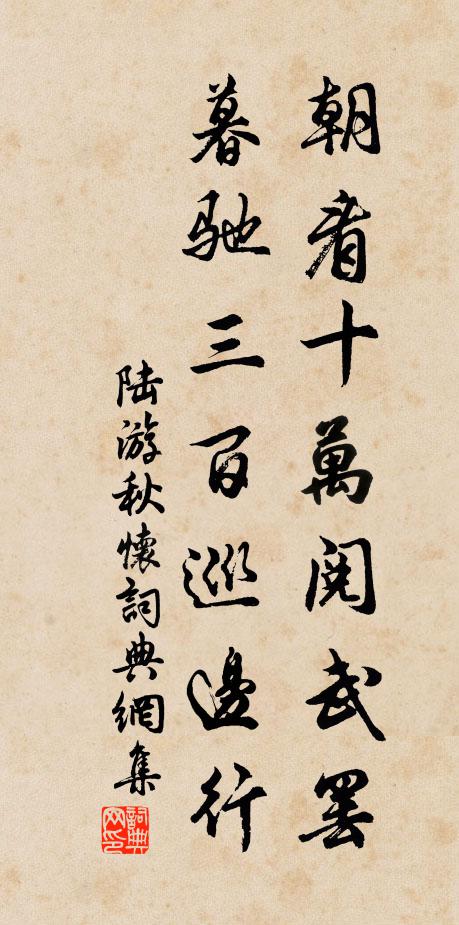 朝看十萬閱武罷
暮馳三百巡邊行
陸游秋懷詞典網集
詞典網印